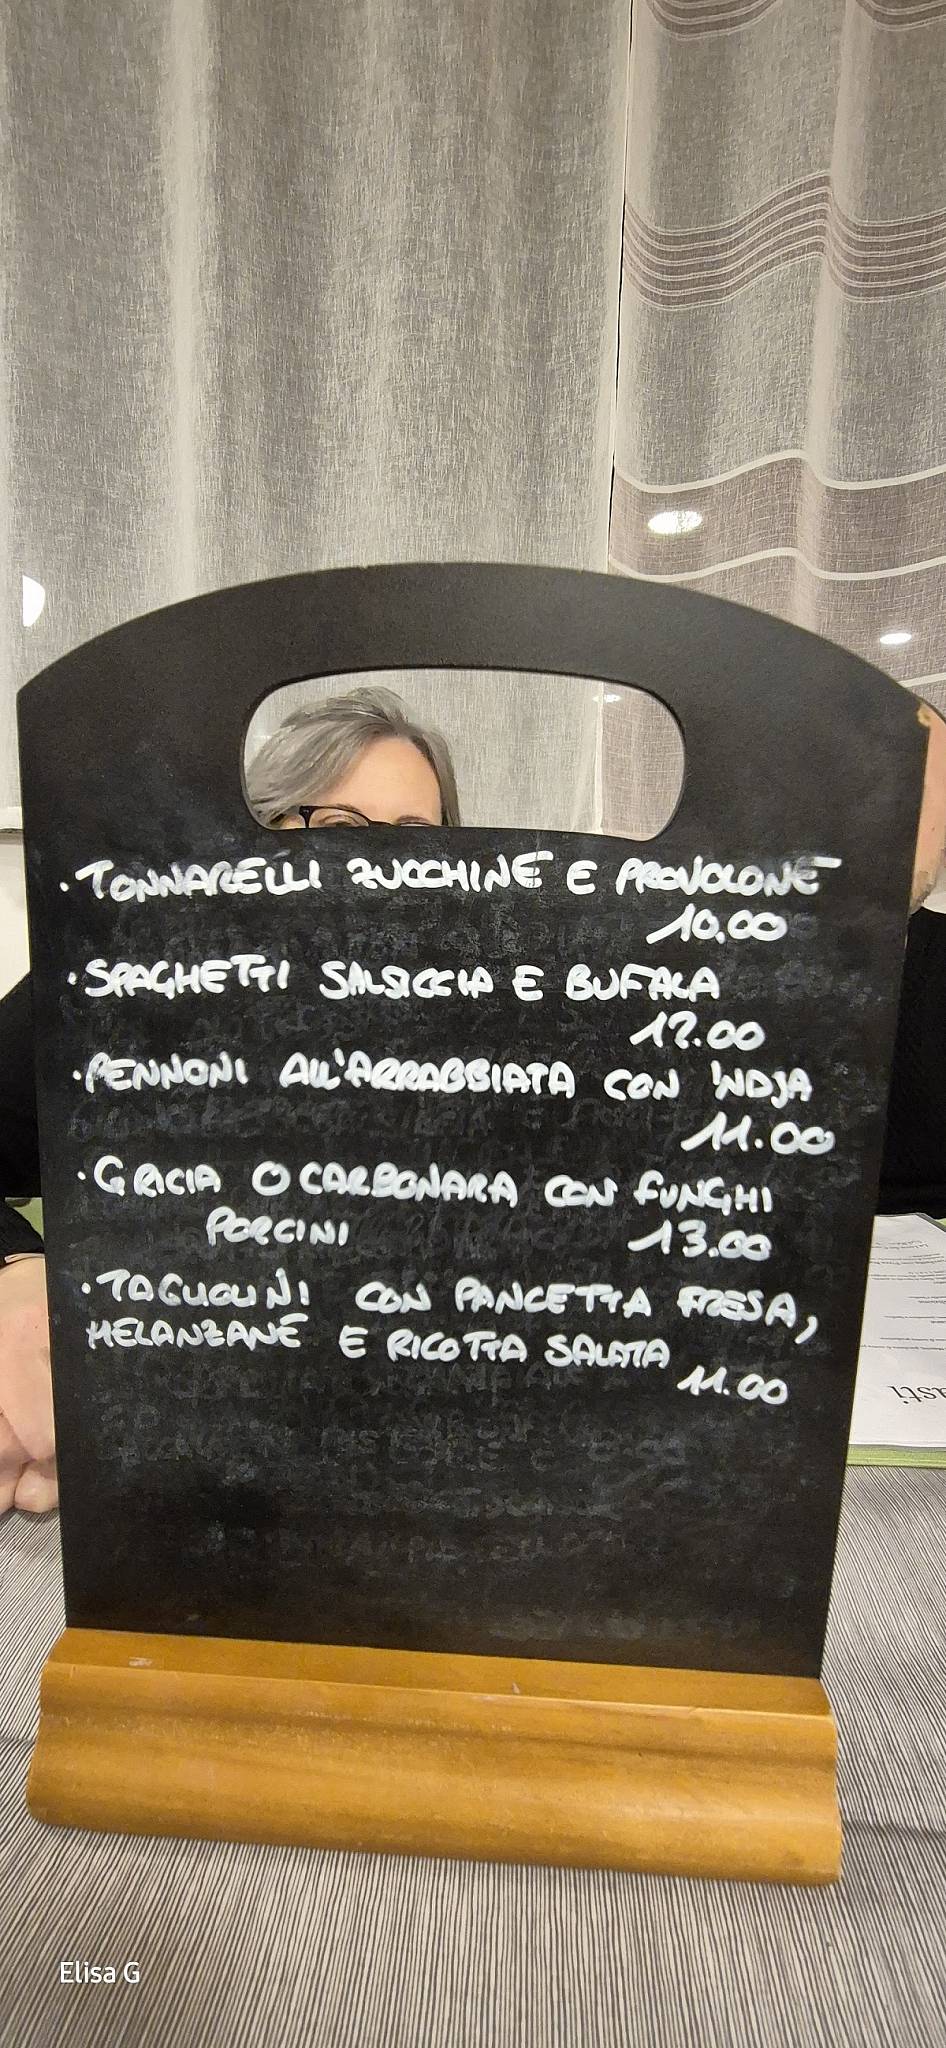 · TONNARELLI ZUCCHINE E PROVOLONE
10.00
· SPAGHETTI SALSICCIA E BUFALA
12.00
· PENNONI ALL'ARRABBIATA CON 'NDJA
11.00
· GRICIA O CARBONARA CON FUNGHI
PORCINI 13.00
· TAGLIOLINI CON PANCETTA FRESA,
MELANZANE E RICOTTA SALATA
11.00
Elisa G